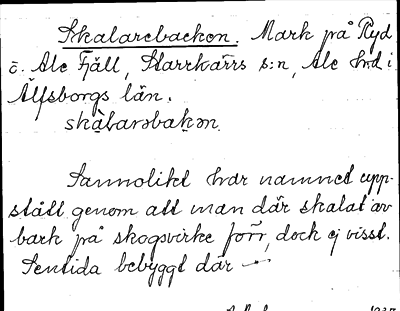 Skalarebacken. Mark på Ryd
c. Ale Fjäll, Starrkärrs s:n, Ale hrd i
Älfsborgs län.
skàlarəbakən
Sannolikt har namnet upp-
stått genom att man där skalat av
bark på skogsvirke förr, dock ej visst.
Sentida bebyggt där